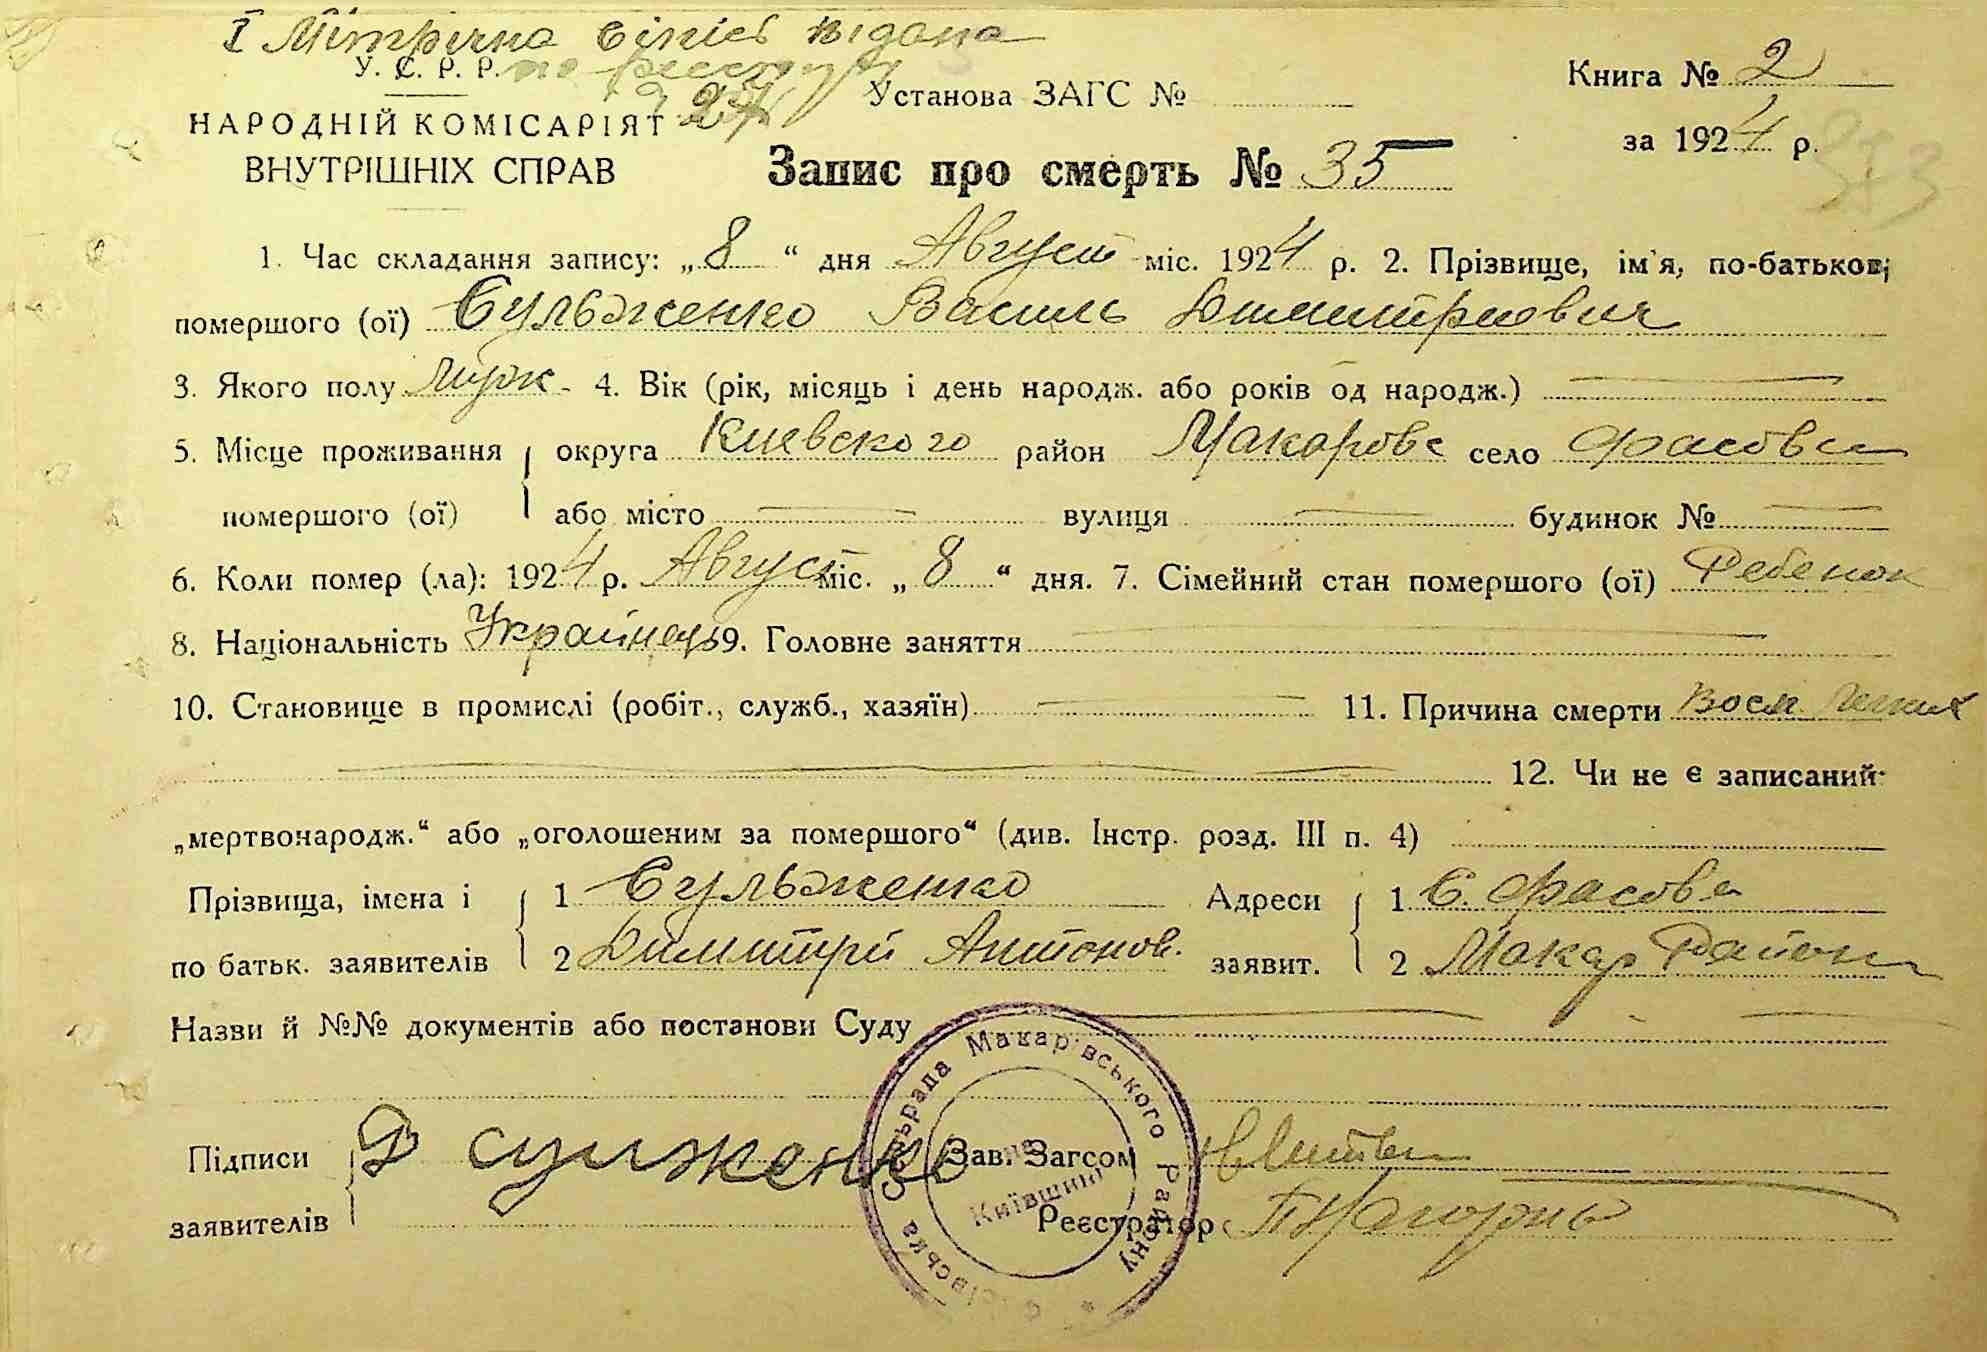 І Метрична випісь видана
У. С. Р. Р. по реєстру
НАРОДНІЙ КОМІСАРІЯТ
ВНУТРІШНІХ СПРАВ
Установа ЗАГС №
Книга № 2
за 1924 р.
Запис про смерть № 35
1. Час складання запису: „8“ дня Август міс. 1924 р. 2. Прізвище, ім'я, по-батькові
помершого (ої) Сульженко Василь Дмитриевич
3. Якого полу Муж. 4. Вік (рік, місяць і день народж. або років од народж.)
5. Місце проживання округа Киевского район Макаровс село Фасовa
помершого (ої) або місто вулиця будинок №
6. Коли помер (ла): 1924 р. Август міс. „8“ дня. 7. Сімейний стан помершого (ої) Ребенок
8. Національність Українець 9. Головне заняття
10. Становище в промислі (робіт., служб., хазяїн) 11. Причина смерти Восп легких
12. Чи не є записаний
„мертвонародж.“ або „оголошеним за помершого“ (див. Інстр. розд. III п. 4)
Прізвища, імена і 1 Сульженко Адреси 1 С. Фасова
по батьк. заявителів 2 Димитрій Антонов. заявит. 2 Макар Район
Назви й №№ документів або постанови Суду
Підписи Д сулженко Зав. Загсом
заявителів Реєстратор Нагорны
Фасівська Сельрада Макарівського Району
на Київщині